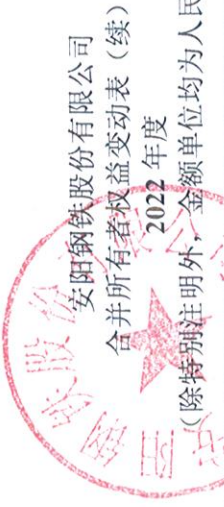 安阳钢铁股份有限公司
合并所有者权益变动表（续）
2022 年度
（除特别注明外，金额单位均为人民